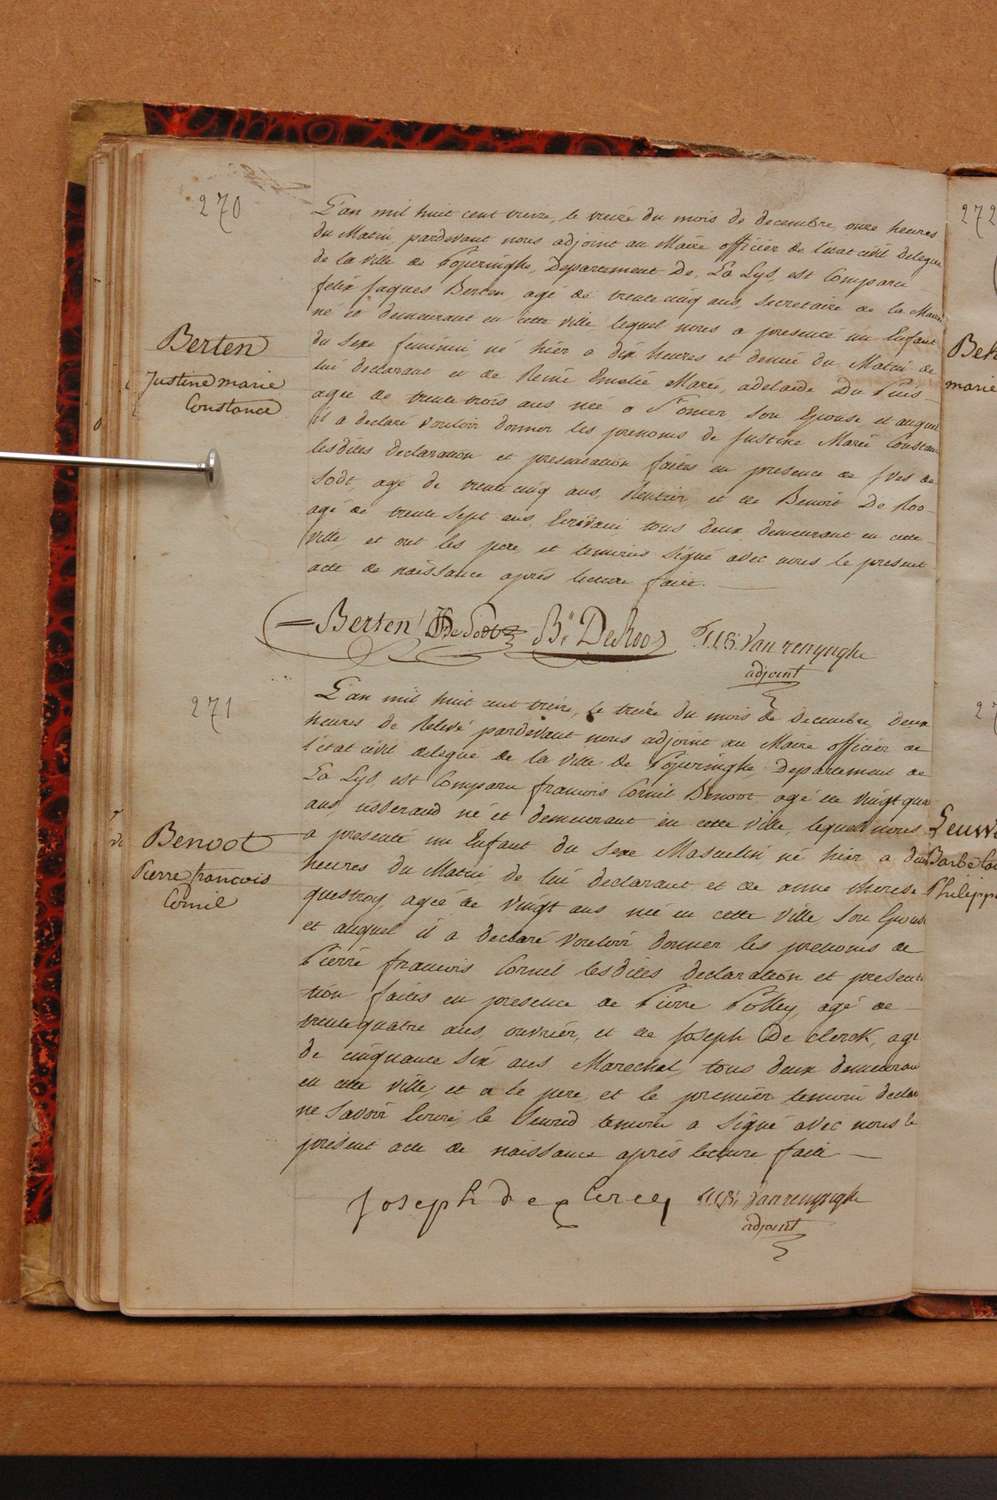 270
L'an mil huit cent treize, le treize du mois de decembre, onze heures
du Matin, pardevant nous adjoint au Maire officier de l'etat civil delegué
de la Ville de Poperinghe, Departement de La Lys, est Comparu
felix Jaques Berten, agé de trente cinq ans, secretaire de la Mairie
né et demeurant en cette ville lequel nous a presenté un Enfant
Berten
du sexe feminin né hier a dix heures et demie du Matin de
Justine marie
lui declarant et de Reine Emelie Marie, adelaide Du Puis
Constance
agée de trente trois ans née a St omer son Epouse, et auquel
il a declaré vouloir donner les prenoms de Justine Marie Constan
lesdites declaration et presentation faites en presence de Yves de
Sodt, agé de trente cinq ans, Rentier, et de Benoit De Roo
agé de trente sept ans, Ecrivain tous deux demeurant en cette
ville et ont les pere et temoins signé avec nous le present
acte de naissance aprés lecture faite.
Berten De Sodt Bt DeRoo Van renynghe
adjoint
271
L'an mil huit cent treize, le treize du mois de Decembre deux
heures de Relevé pardevant nous adjoint au Maire officier de
l'etat civil delegué de la Ville de Poperinghe departement de
La Lys, est Comparu francois Cornil Benoot, agé de vingt qua
ans, tisserand né et demeurant en cette ville, lequel nous
Benoot
a presenté un Enfant du sexe Masculin né hier a dix
Pierre francois
heures du Matin, de lui declarant et de anne therese
Cornil
questroy, agée de vingt ans née en cette ville son Epouse
et auquel il a declaré vouloir donner les prenoms de
Pierre francois Cornil lesdites declaration et presenta
tion faites en presence de Pierre Polley, agé de
trente quatre ans ouvrier, et de Joseph De clerck, agé
de cinquante six ans Marechal, tous deux demeurant
en cette ville, et a le pere, et le premier temoin declaré
ne savoir Ecrire, le second temoin a signé avec nous le
present acte de naissance aprés lecture faite
Joseph de Clercq Van renynghe
adjoint
272
Bek
marie
Leuwe
Barbe
Philippe